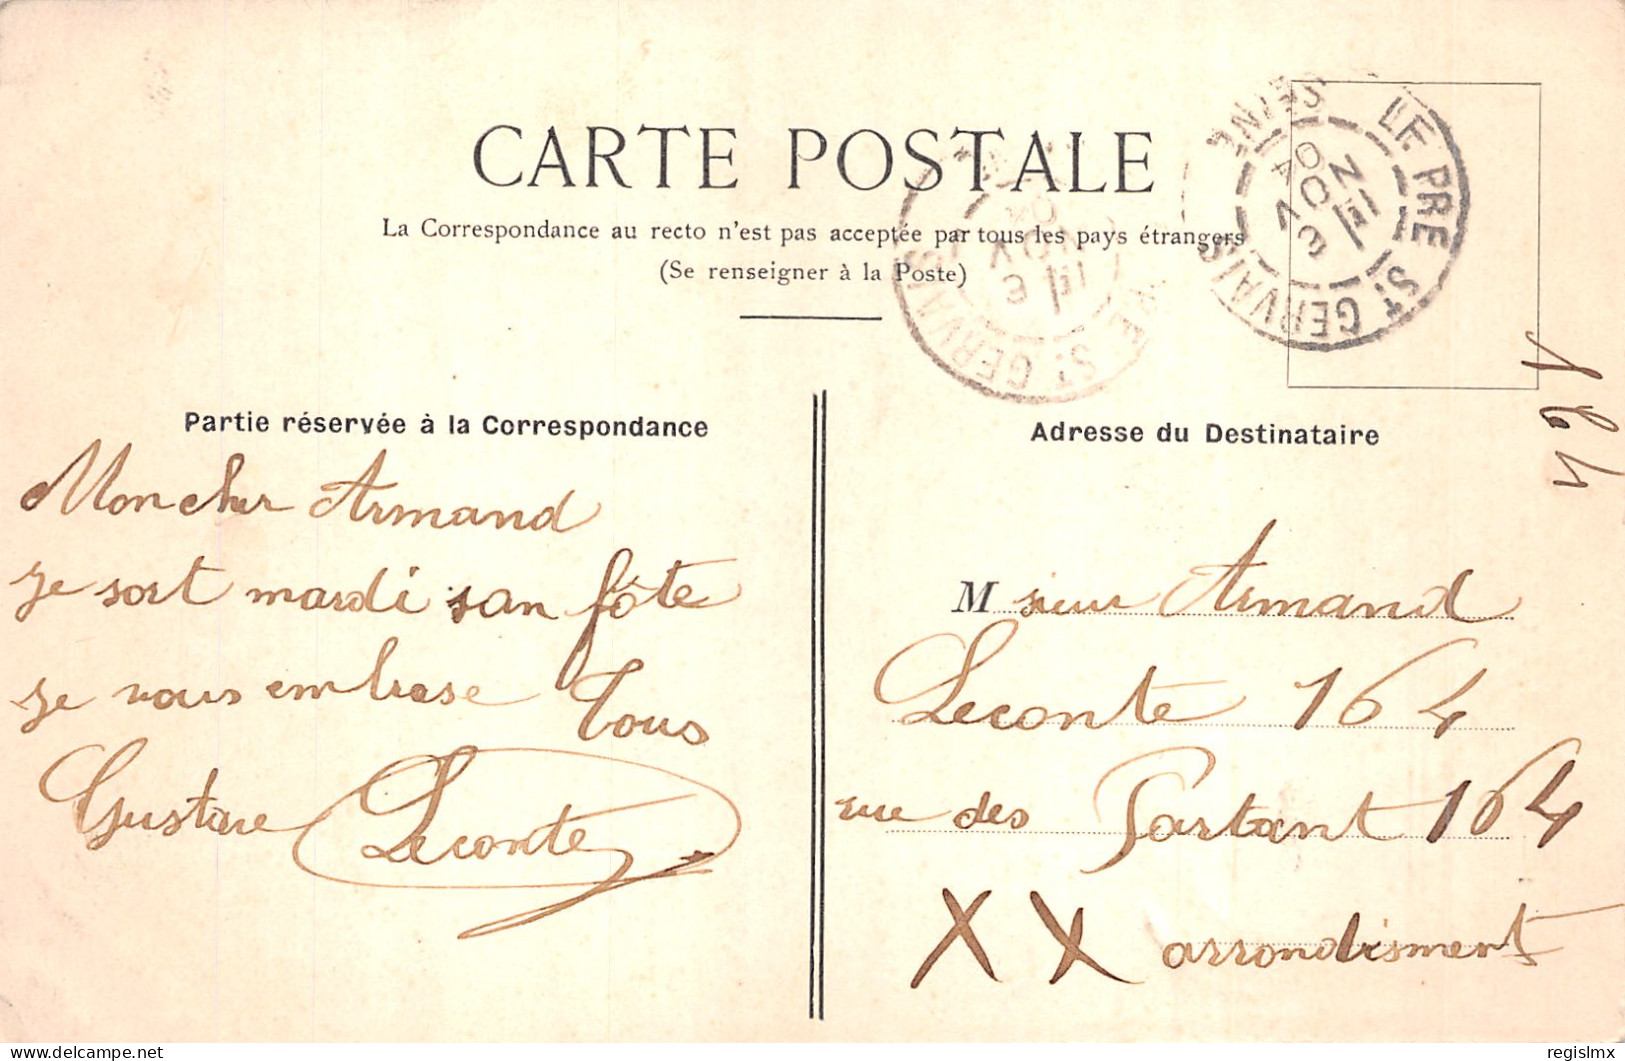 CARTE POSTALE
La Correspondance au recto n'est pas acceptée par tous les pays étrangers
(Se renseigner à la Poste)
LE PRE ST GERVAIS
SEINE
ST GERVAIS
Partie réservée à la Correspondance
Mon cher Armand
je sort mardi san fôte
je vous embrase Tous
Gustave Leconte
Adresse du Destinataire
164
M sieur Armand
Leconte 164
rue des Partant 164
XX arrondisment
delcampe.net
regislmx